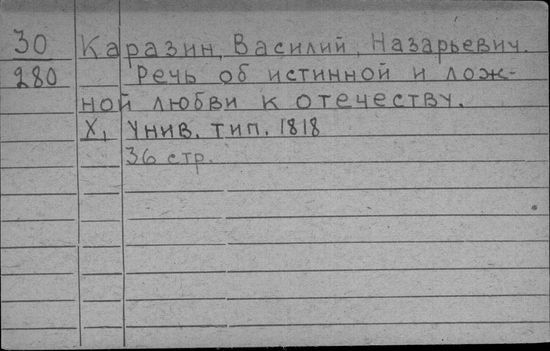 30 Каразин, Василий, Назарьевич.
280 Речь об истинной и лож-
ной любви к отечеству.
Х, Унив. тип. 1818
36 стр.